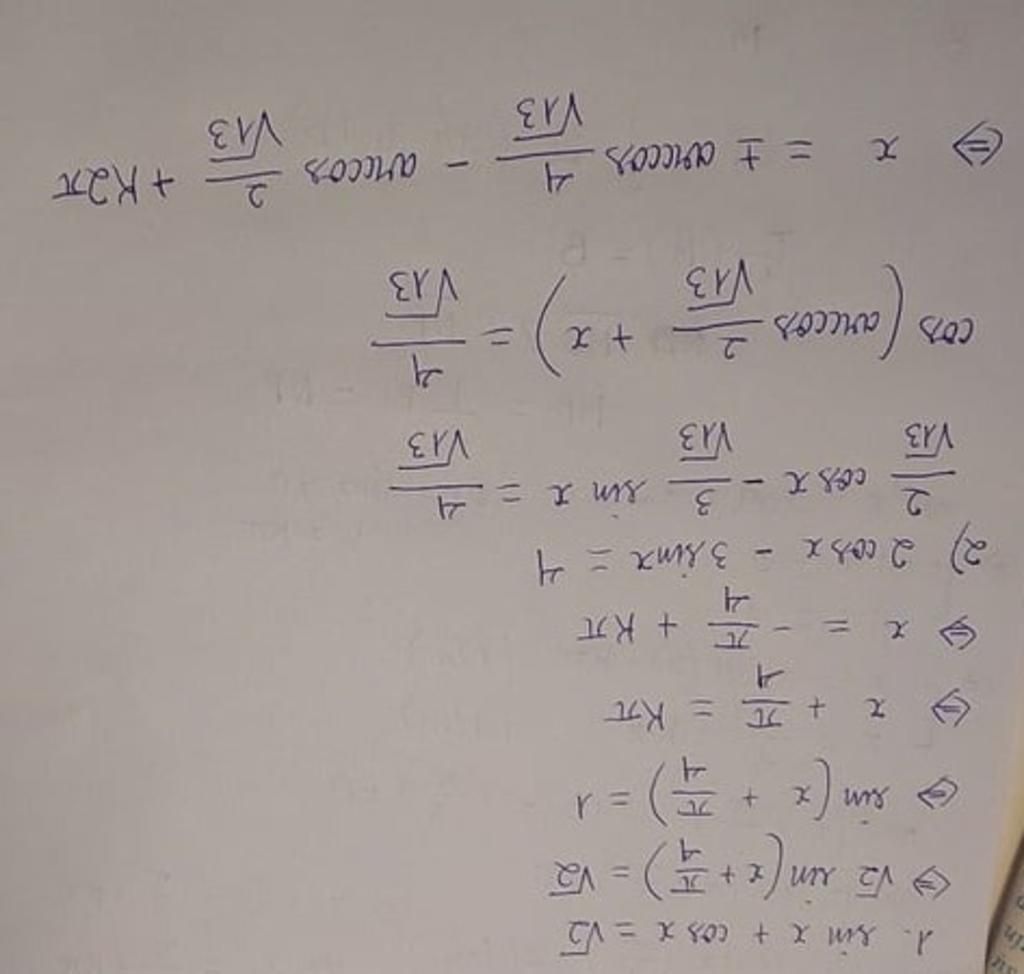 1. sin x + cos x = √2
⇔ √2 sin(x + π/4) = √2
⇔ sin(x + π/4) = 1
⇔ x + π/4 = Kπ
⇔ x = -π/4 + Kπ
2) 2 cos x - 3 sin x = 4
2/√13 cos x - 3/√13 sin x = 4/√13
cos(arccos 2/√13 + x) = 4/√13
⇔ x = ± arccos 4/√13 - arccos 2/√13 + K2π